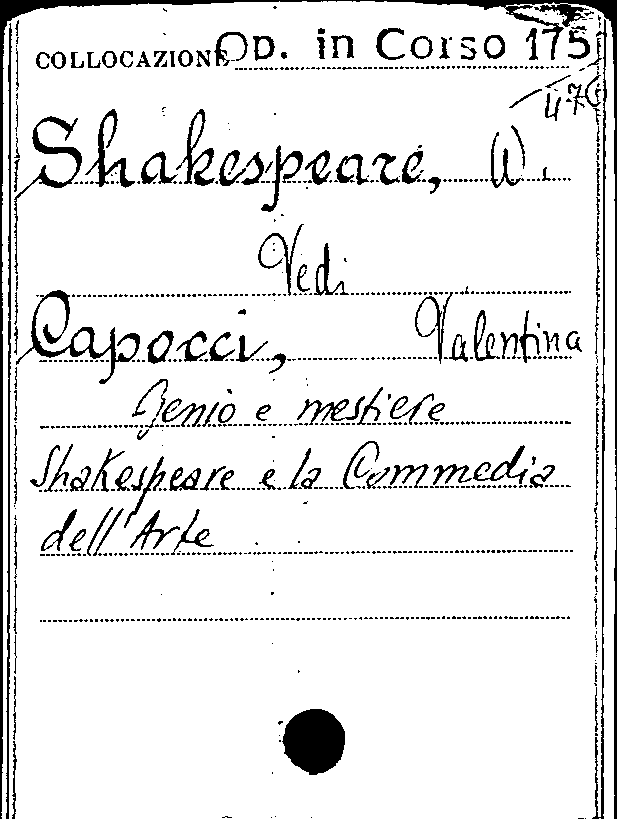 COLLOCAZIONE Op. in Corso 175
Shakespeare, W.
Vedi
Capocci, Valentina
Genio e mestiere
Shakespeare e la Commedia
dell'Arte